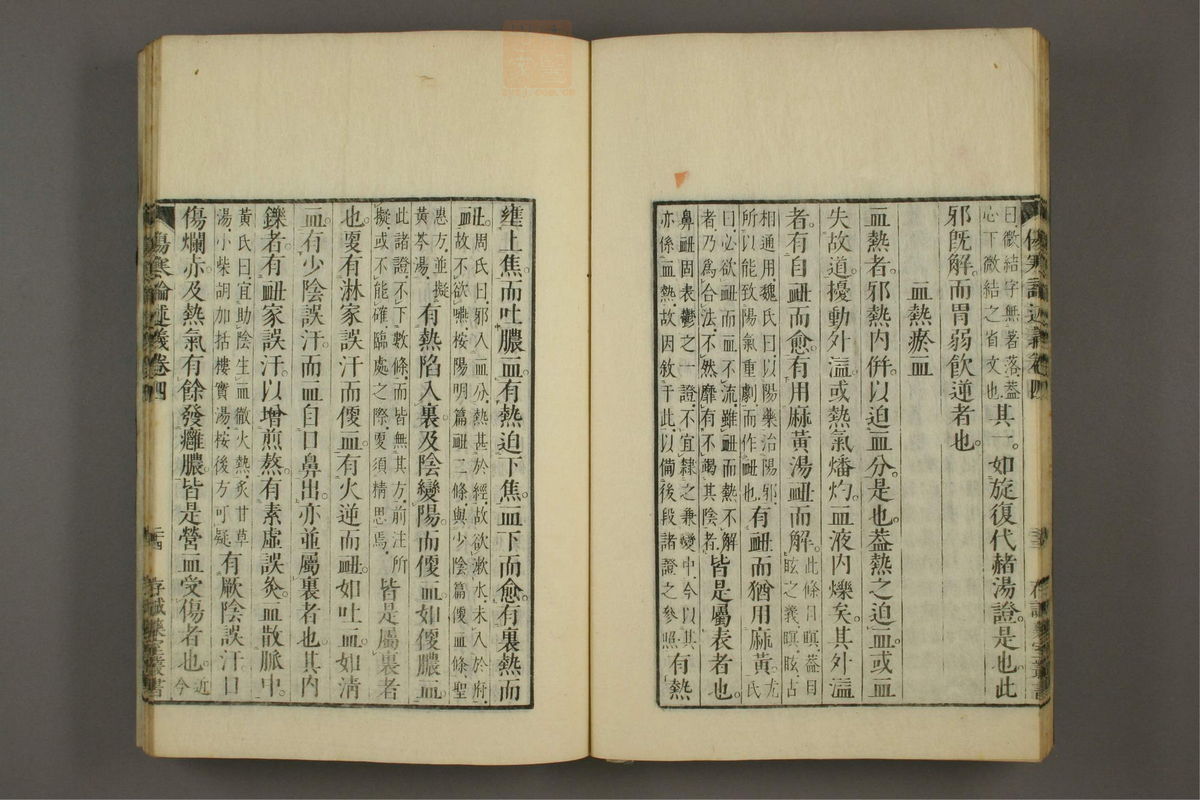 曰微結字無著落蓋
心下微結之省文也其一如旋復代赭湯證是也此
邪既解而胃弱飲逆者也
血熱瘀血
血熱者邪熱內併以迫血分是也蓋熱之迫血或血
失故道擾動外溢或熱氣燔灼血液內爍矣其外溢
者有自衄而愈有用麻黃湯衄而解此條目瞑蓋目
眩之義瞑眩古
相通用魏氏曰以陽藥治陽邪
所以能致陽氣重劇而作衄也有衄而猶用麻黃尤氏
曰必欲衄而血不流雖衄而熱不解
者乃爲合法不然靡有不竭其陰者皆是屬表者也
鼻衄固表鬱之一證不宜隸之兼變中今以其
亦係血熱故因敘于此以備後段諸證之參照有熱
壅上焦而吐膿血有熱迫下焦血下而愈有裏熱而
衄周氏曰邪入血分熱甚於經故欲漱水未入於府
故不欲嚥按陽明篇衄二條與少陰篇便血條聖
惠方並擬
黃芩湯有熱陷入裏及陰變陽而便血如便膿血
此諸證不下數條而皆無其方前注所
擬或不能確臨處之際更須精思焉皆是屬裏者
也更有淋家誤汗而便血有火逆而衄如吐血如淸
血有少陰誤汗而血自口鼻出亦並屬裏者也其內
鑠者有衄家誤汗以增煎熬有素虛誤灸血散脈中
黃氏曰宜助陰生血徹火熱炙甘草
湯小柴胡加括樓實湯按後方可疑有厥陰誤汗口
傷爛赤及熱氣有餘發癰膿皆是營血受傷者也近
今
傷寒論述義卷四
二十四
存誠藥室叢書